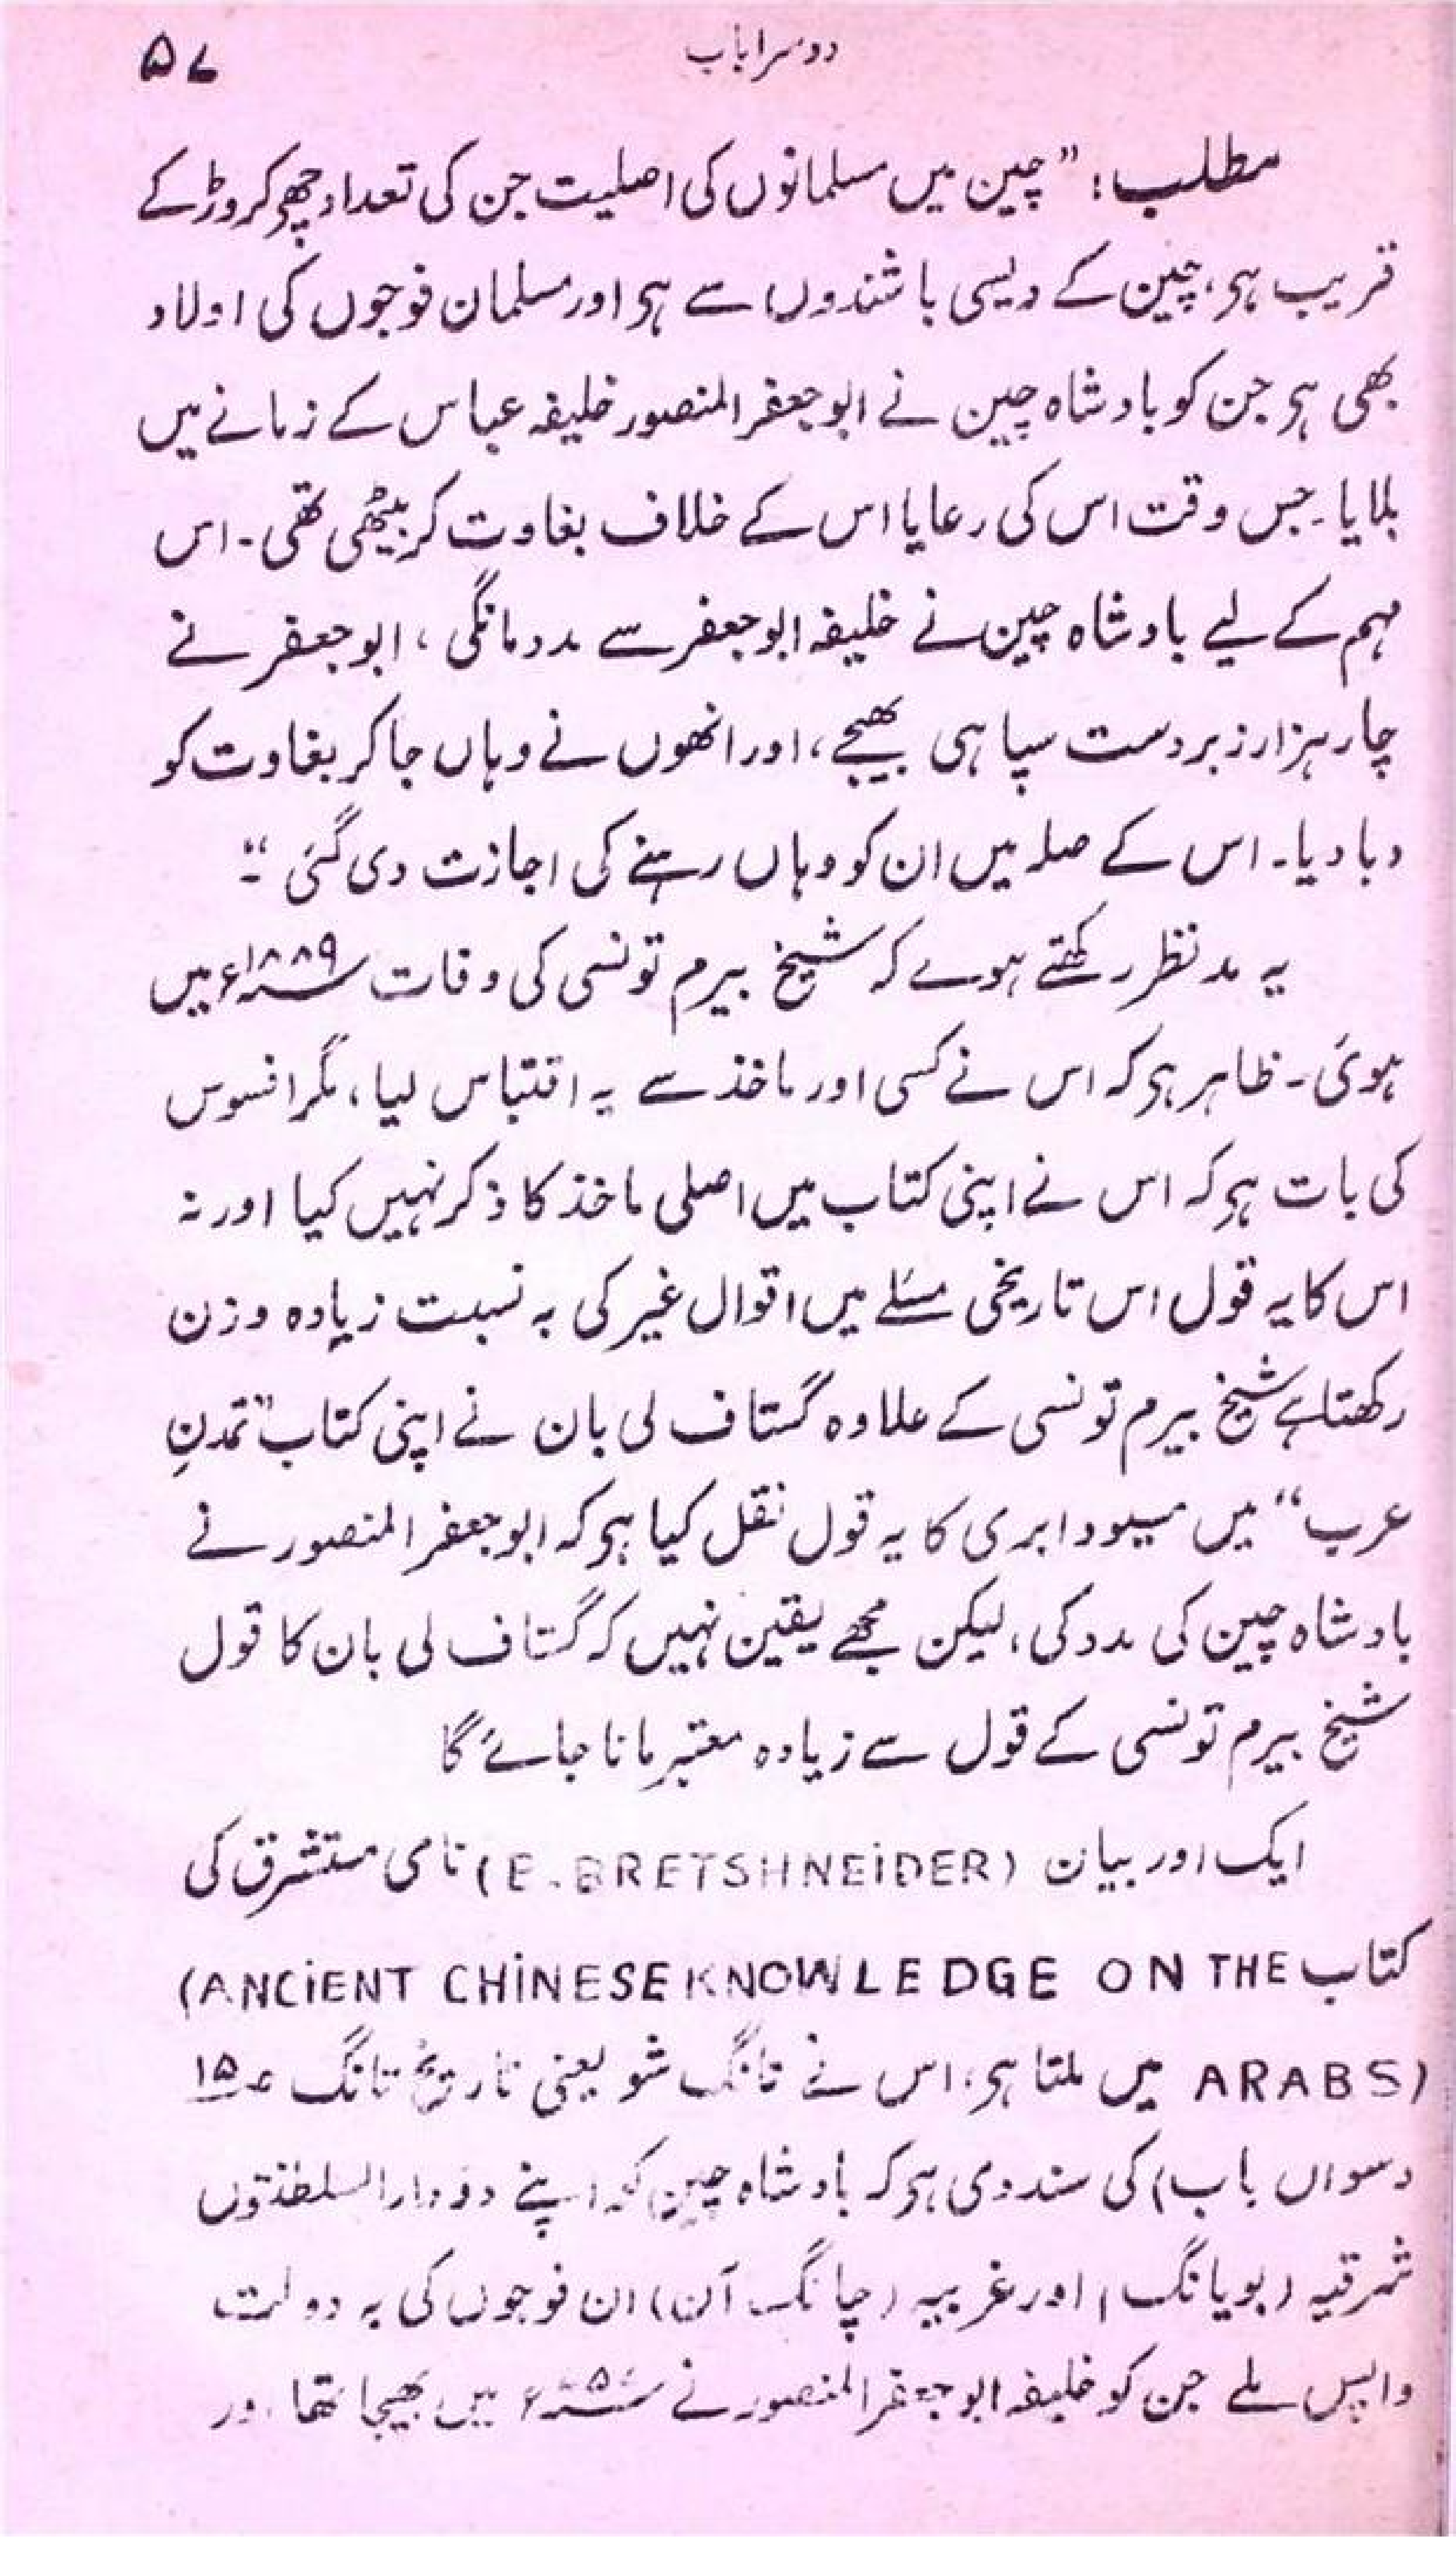 دوسرا باب ۵۷
مطلب: ”چین میں مسلمانوں کی اصلیت جن کی تعداد چھ کروڑ کے
قریب ہی، چین کے دیسی باشندوں سے ہی اور مسلمان فوجوں کی اولاد
بھی ہی جن کو بادشاہ چین نے ابوجعفر المنصور خلیفہ عباس کے زمانے میں
بلایا۔ جس وقت اس کی رعایا اس کے خلاف بغاوت کر بیٹھی تھی۔ اس
مہم کے لیے بادشاہ چین نے خلیفہ ابوجعفر سے مدد مانگی، ابوجعفر نے
چار ہزار زبردست سپاہی بھیجے، اور انھوں نے وہاں جا کر بغاوت کو
دبا دیا۔ اس کے صلہ میں ان کو وہاں رہنے کی اجازت دی گئی“۔
یہ مدنظر رکھتے ہوے کہ شیخ بیرم تونسی کی وفات ۱۸۸۹ء میں
ہوئی۔ ظاہر ہی کہ اس نے کسی اور ماخذ سے یہ اقتباس لیا، مگر افسوس
کی بات ہی کہ اس نے اپنی کتاب میں اصلی ماخذ کا ذکر نہیں کیا اور نہ
اس کا یہ قول اس تاریخی مسئلے میں اقوال غیر کی بہ نسبت زیادہ وزن
رکھتا ہے شیخ بیرم تونسی کے علاوہ گستاف لی بان نے اپنی کتاب ”تمدنِ
عرب“ میں میسو دابری کا یہ قول نقل کیا ہی کہ ابوجعفر المنصور نے
بادشاہ چین کی مدد کی، لیکن مجھے یقین نہیں کہ گستاف لی بان کا قول
شیخ بیرم تونسی کے قول سے زیادہ معتبر مانا جائے گا
ایک اور بیان (E. BRETSHNEIDER) نامی مستشرق کی
کتاب (ANCIENT CHINESE KNOWLEDGE ON THE
ARABS) میں ملتا ہی، اس نے تانگ شو یعنی تاریخ تانگ
دسواں باب) کی سند دی ہی کہ بادشاہ چین کو اپنے دو دارالسلطنتوں
شرقیہ (بویانگ) اور غربیہ (چانگ آن) ان فوجوں کی بہ دولت
واپس ملے جن کو خلیفہ ابوجعفر المنصور نے میں بھیجا تھا اور